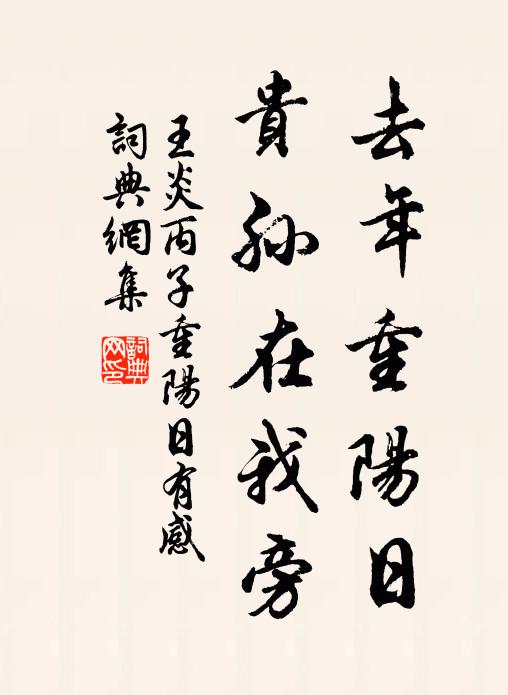 去年重陽日
貴孙在我旁
王炎丙子重陽日有感
詞典網集
詞典網印